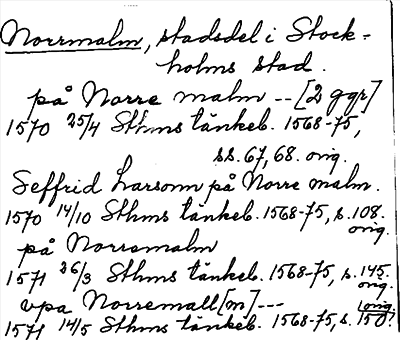 Norrmalm, stadsdel i Stock-
holms stad.
på Norre malm -- [2 ggr]
1570 25/4 Sthms tänkeb. 1568-75,
ss. 67, 68. orig.
Seffrid Larsonn på Norre malm.
1570 14/10 Sthms tänkeb. 1568-75, s. 108.
orig.
på Norremalm
1571 26/3 Sthms tänkeb. 1568-75, s. 145.
orig.
vpa Norremall[m] ---
1571 14/5 Sthms tänkeb. 1568-75, s. 150.
orig.